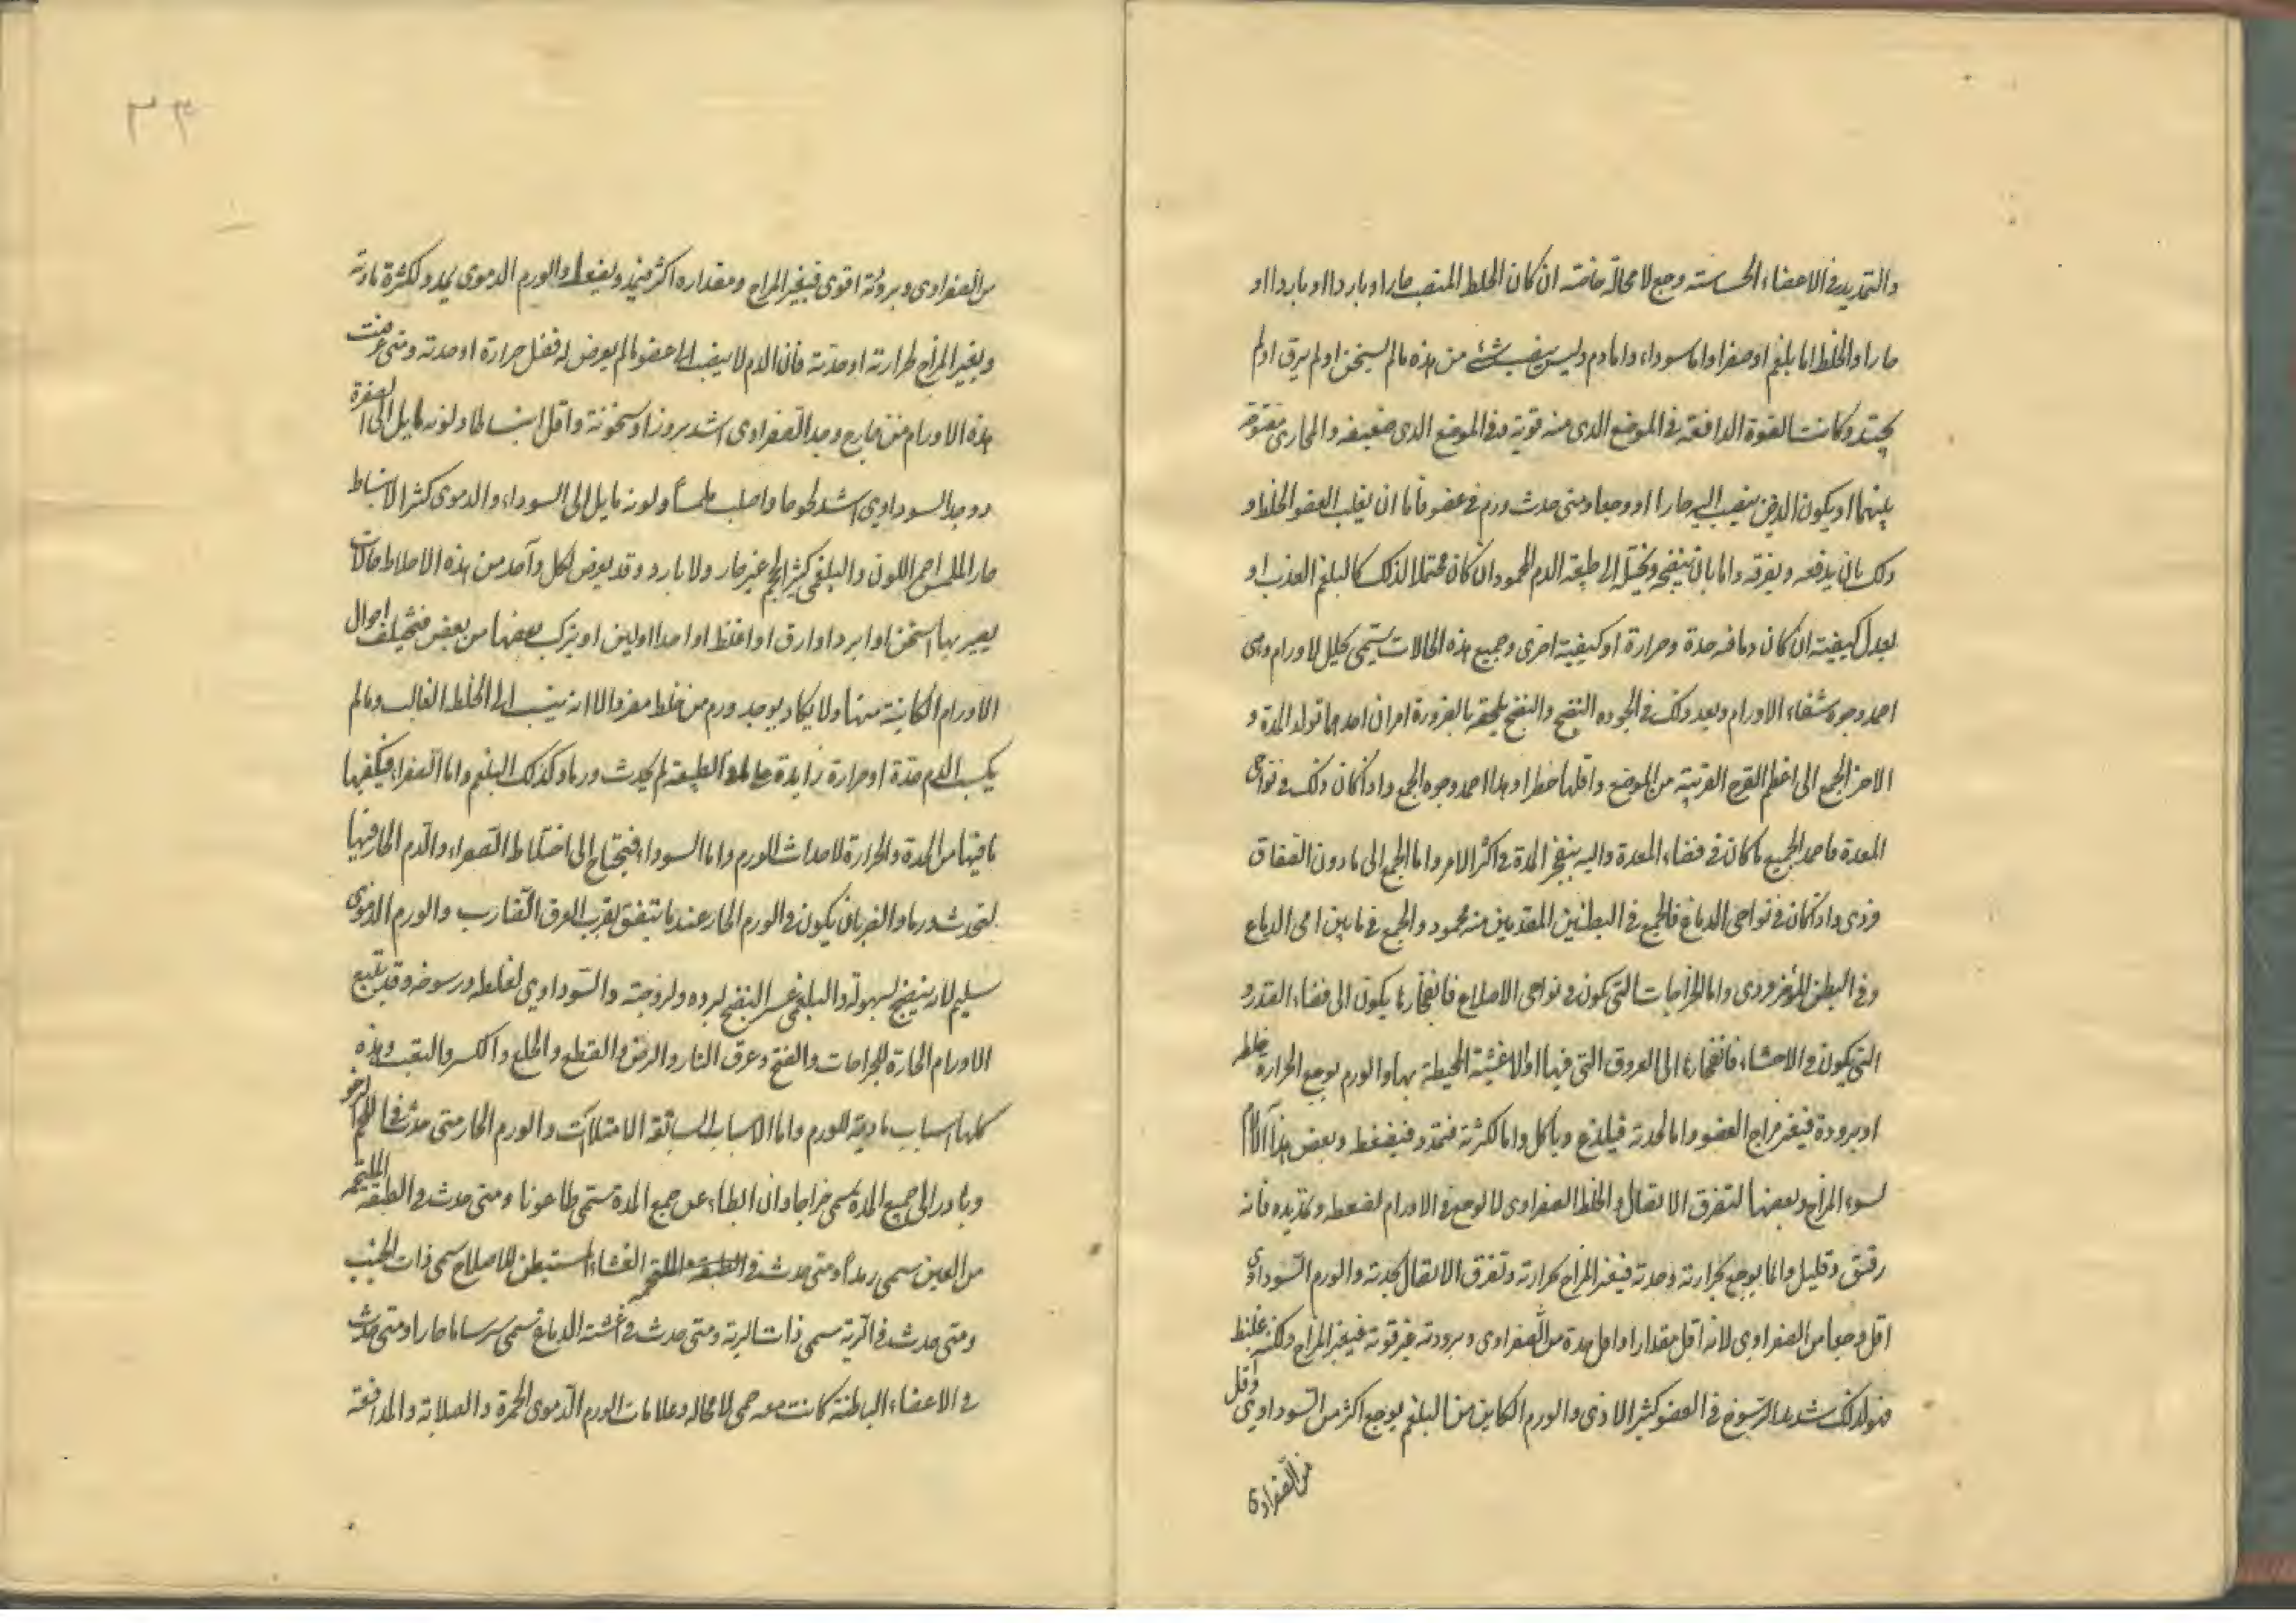 والتمديد في الاعضاء الحساسة وجع لا محالة خاصة ان كان الخلط المنصب حارا او باردا او باردا او
حارا والخلط اما بلغم او صفرا واما سوداء واما دم وليس ينصب شئ من هذه ما لم يسخن او لم يرق او لم
يحتد وكانت القوة الدافعة في الموضع الذى منه قوية وفى الموضع الذى ضعيفه والمجارى مفتوحة
بينهما او يكون الذى ينصب اليه حارا او وجعا ومتى حدث ورم في عضو فاما ان يغلب العضو الخلط و
ذلك بان يدفعه ويفرقه واما بان ينضجه ويحيله الى طبيعة الدم المحمود ان كان محتملا لذلك كالبلغم العذب او
يعدل كيفيته ان كان دما فيه حدة وحرارة او كيفية اخرى وجميع هذه الحالات يسمى تحليل الاورام وهى
احمد وجوه شفاء الاورام وبعد ذلك في الجوده النضج والنضج يلحقه بالضرورة امران احدهما تولد المدة و
الاخر الجمع الى اعظم الفرج القريبة من الموضع واقلها خطرا وهذا احمد وجوه الجمع واذا كان ذلك في نواحى
المعدة فاحمد الجميع ما كان في فضاء المعدة واليه ينفجر المدة في اكثر الامر واما الجمع الى ما دون الصفاق
فردى واذا كان في نواحى الدماغ فالجمع في البطنين المقدمين منه محمود والجمع في ما بين امى الدماغ
وفى البطن المؤخر ردى واما الخراجات التى يكون في نواحى الاضلاع فانفجارها يكون الى فضاء الصدر و
التى يكون في الاحشاء فانفجارها الى العروق التى فيها او الاغشية المحيطة بها والورم يوجع الحرارة خلطه
او برودة فيغير مزاج العضو واما لحدته فيلذع وياكل واما لكثرته فيمدد فيضغط وبعض هذا الآلام
لسوء المزاج وبعضها لتفرق الاتصال والخلط الصفراوى لا يوجع في الاورام لضغطه وتمديده فانه
رقيق وقليل وانما يوجع بحرارته وحدته فيغير المزاج بحرارته وتفرق الاتصال بحدته والورم السوداوي
اقل وجعا من الصفراوى لانه اقل مقدارا واقل حدة من الصفراوى وبرودته غير قوية فيغير المزاج ولكنه غليظ
فهو لذلك شديد الرسوخ في العضو كثير الاذى والورم الكاين من البلغم يوجع اكثر من السوداوى واقل
من الصفراوى
٣٣
من الصفراوى وبرودته اقوى فيغير المزاج ومقداره اكثر فيمدد ويضغط والورم الدموى يمدد لكثرة مادته
ويغير المزاج لحرارته او حدته فان الدم لا ينصب الى عضو ما لم يعرض له فضل حرارة او حدته ومتى عرضت
هذه الاورام من خارج وجد الصفراوى اشد بروزا وسخونة واقل انبساطا ولونه مايل الى الصفرة
ووجد السوداوى اشد لحوجا واصلب ملمسا ولونه مايل الى السوداء والدموى كثر الانبساط
حار الملمس احمر اللون والبلغمى كثير الحجم غير حار ولا بارد وقد يعرض لكل واحد من هذه الاخلاط حالات
يصير بها اسخن او ابرد او ارق او اغلظ او احد او الين او يتركب بعضها من بعض فتختلف احوال
الاورام الكاينة منها ولا يكاد يوجد ورم من خلط مفرد الا انه ينسب الى الخلط الغالب وما لم
يكسب الدم حدة او حرارة زايدة على الطبيعة لم يحدث ورما وكذلك البلغم واما الصفرا فيكفيها
ما فيها من الحدة والحرارة لاحداث الورم واما السوداء فتحتاج الى اختلاط الصفراء والدم الحار فيها
لتحدث ورما والضربان يكون في الورم الحار عندما يتفق بقرب العرق الضارب والورم الدموى
سليم لانه ينضج بسهولة والبلغمى عسر النضج لبرده ولزوجته والسوداوي لغلظه ورسوخه وقد يتبع
الاورام الحارة للجراحات والفسخ وحرق النار والرض والقطع والخلع والكسر والنقب وهذه
كلها اسباب بادية للورم واما الاسباب السابقة الامتلاآت والورم الحار متى حدث في اللحم الرخو
وبادر الى جميع المدة سمى خراجا وان ابطاء عن جمع المدة سمى طاعونا ومتى حدث في الطبقة الملتحمة
من العين سمى رمدا ومتى حدث في الغشاء المستبطن للاضلاع سمى ذات الجنب
ومتى حدث في الرية سمى ذات الرية ومتى حدث في اغشية الدماغ سمى سرساما حارا ومتى حدث
في الاعضاء الباطنة كانت معه حمى لا محاله وعلامات الورم الدموى الحمرة والصلابة والمدافعة